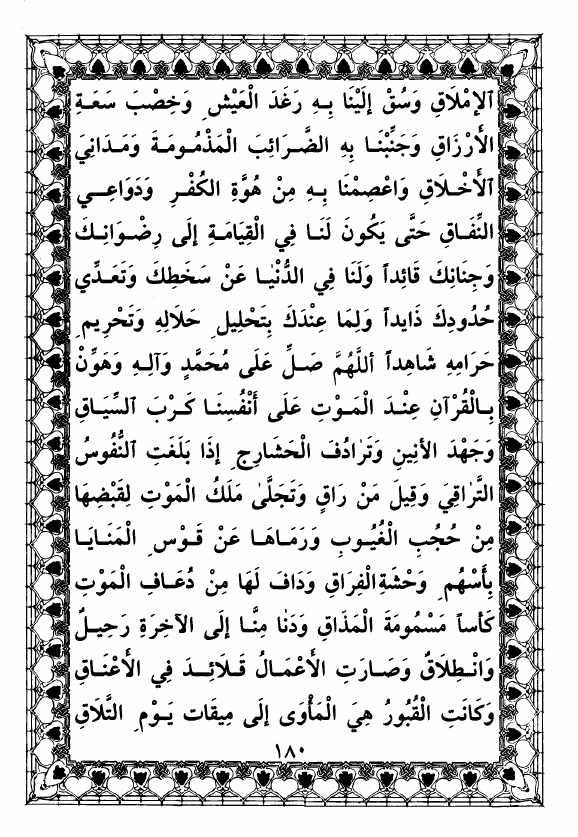 الإمْلَاقِ وَسُقْ إلَيْنَا بِهِ رَغَدَ الْعَيْشِ وَخِصْبَ سَعَةِ
الْأَرْزَاقِ وَجَنِّبْنَا بِهِ الضَّرَائِبَ الْمَذْمُومَةَ وَمَدَانِيَ
الْأَخْلَاقِ وَاعْصِمْنَا بِهِ مِنْ هُوَّةِ الكُفْرِ وَدَوَاعِي
النِّفَاقِ حَتَّى يَكُونَ لَنَا فِي الْقِيَامَةِ إلَى رِضْوَانِكَ
وَجِنَانِكَ قَائِداً وَلَنَا فِي الدُّنْيَا عَنْ سَخَطِكَ وَتَعَدِّي
حُدُودِكَ ذَايِداً وَلِمَا عِنْدَكَ بِتَحْلِيلِ حَلَالِهِ وَتَحْرِيمِ
حَرَامِهِ شَاهِداً أللَّهُمَّ صَلِّ عَلَى مُحَمَّدٍ وَآلِهِ وَهَوِّنْ
بِالْقُرْآنِ عِنْدَ الْمَوْتِ عَلَى أَنْفُسِنَا كَرْبَ السِّيَاقِ
وَجَهْدَ الأنِينِ وَتَرَادُفَ الْحَشَارِجِ إذَا بَلَغَتِ النُّفُوسُ
التَّرَاقِيَ وَقِيلَ مَنْ رَاقٍ وَتَجَلَّىٰ مَلَكُ الْمَوْتِ لِقَبْضِهَا
مِنْ حُجُبِ الْغُيُوبِ وَرَمَاهَا عَنْ قَوْسِ الْمَنَايَا
بِأَسْهُمِ وَحْشَةِالْفِرَاقِ وَدَافَ لَهَا مِنْ دُعَافِ الْمَوْتِ
كَأساً مَسْمُومَةَ الْمَذَاقِ وَدَنَا مِنَّا إلَى الآخِرَةِ رَحِيلٌ
وَانْطِلَاقٌ وَصَارَتِ الأَعْمَالُ قَلَائِدَ فِي الأَعْنَاقِ
وَكَانَتِ الْقُبُورُ هِيَ الْمَأْوَى إلَى مِيقَاتِ يَوْمِ التَّلَاقِ
١٨٠